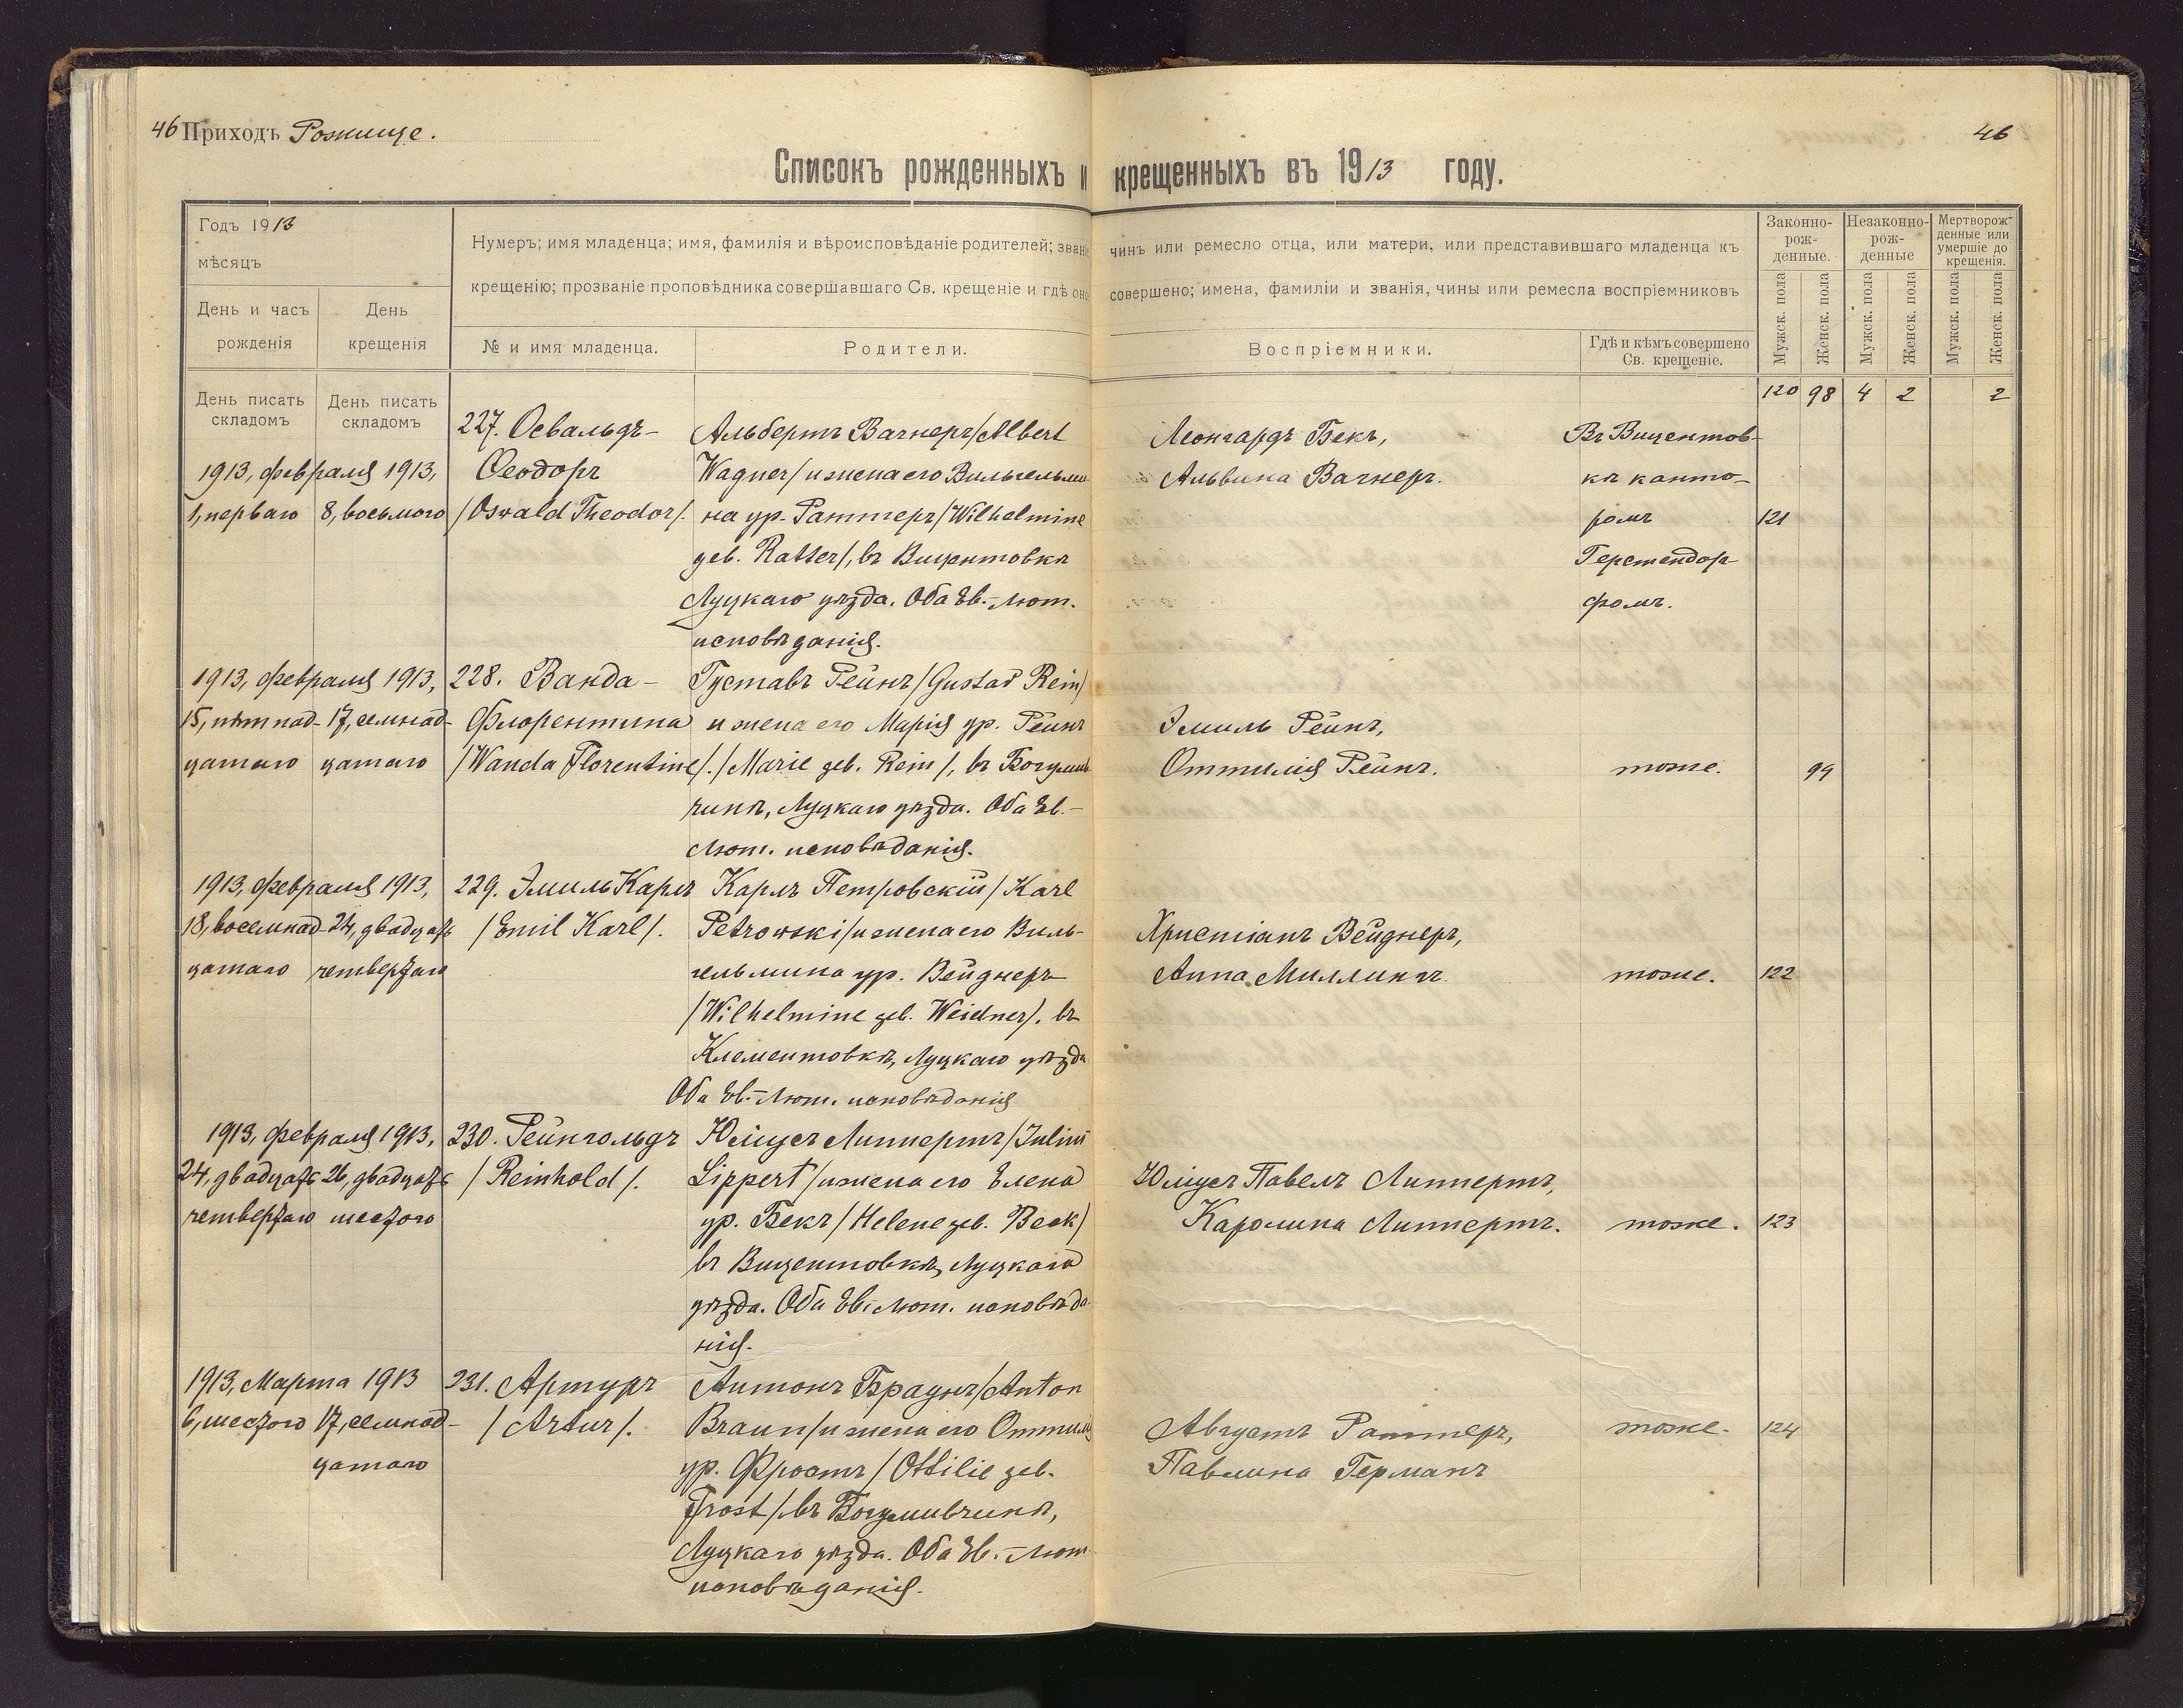 46 Приходъ Рожище.
46
Списокъ рожденныхъ и крещенныхъ въ 1913 году.
Годъ 1913
мѣсяцъ
День и часъ
рожденія
День
крещенія
Нумеръ; имя младенца; имя, фамилія и вѣроисповѣданіе родителей; званіе
чинъ или ремесло отца, или матери, или представившаго младенца къ
крещенію; прозваніе проповѣдника совершавшаго Св. крещеніе и гдѣ оно
совершено; имена, фамиліи и званія, чины или ремесла воспріемниковъ
№ и имя младенца.
Родители.
Воспріемники.
Гдѣ и кѣмъ совершено
Св. крещеніе.
Законно-
рож-
денные.
Незаконно-
рож-
денные
Мертворож-
денные или
умершіе до
крещенія.
Мужск. пола
Женск. пола
Мужск. пола
Женск. пола
Мужск. пола
Женск. пола
День писать
складомъ
День писать
складомъ
120 98 4 2 2
1913, февраля 1913,
1, перваго 8, восьмого
227. Освальдъ-
Ѳеодоръ
/Oswald Theodor/.
Альбертъ Вагнеръ/Albert
Wagner/ и жена его Вильгельми
на ур. Раттеръ/Wilhelmine
geb. Ratter/, въ Вицентовкѣ
Луцкаго уѣзда. Оба Ев.-Лют.
исповѣданія.
Леонгардъ Бекъ,
Альвина Вагнеръ.
Въ Вицентов-
кѣ канто-
ромъ
Герстендор-
фомъ.
121
1913, февраля 1913,
15, пятнад- 17, семнад-
цатаго цатаго
228. Ванда-
Флорентина
/Wanda Florentine/.
Густавъ Рейнъ/Gustav Rein/
и жена его Марія ур. Рейнъ
/Marie geb. Rein/, въ Богумив
чинѣ, Луцкаго уѣзда. Оба Ев.-
Лют. исповѣданія.
Эмиль Рейнъ,
Оттилія Рейнъ.
тоже.
99
1913, февраля 1913,
18, восемнад- 24, двадцать
цатаго четвертаго
229. Эмиль Карлъ
/Emil Karl/.
Карлъ Петровскій/Karl
Petrowski/ и жена его Виль-
гельмина ур. Вейднеръ
/Wilhelmine geb. Weidner/. въ
Клементовкѣ, Луцкаго уѣзда
Оба Ев.-Лют. исповѣданія
Христіанъ Вейднеръ,
Анна Миллингъ.
тоже.
122
1913, февраля 1913,
24, двадцать 26, двадцать
четвертаго шестого
230. Рейнгольдъ
/Reinhold/.
Юліусъ Липпертъ/Julius
Lippert/ и жена его Елена
ур. Бекъ/Helene geb. Beck/
въ Вицентовкѣ, Луцкаго
уѣзда. Оба Ев. Лют. исповѣда
нія.
Юліусъ Павелъ Липпертъ,
Каролина Липпертъ.
тоже.
123
1913, Марта 1913
6, шестого 17, семнад-
цатаго
231. Артуръ
/Artur/.
Антонъ Браунъ/Anton
Braun/ и жена его Оттилія
ур. Фростъ/Ottilie geb.
Frost/ въ Богумивчинѣ,
Луцкаго уѣзда. Оба Ев.-Лют.
исповѣданія.
Августъ Раттеръ,
Павлина Германъ
тоже.
124